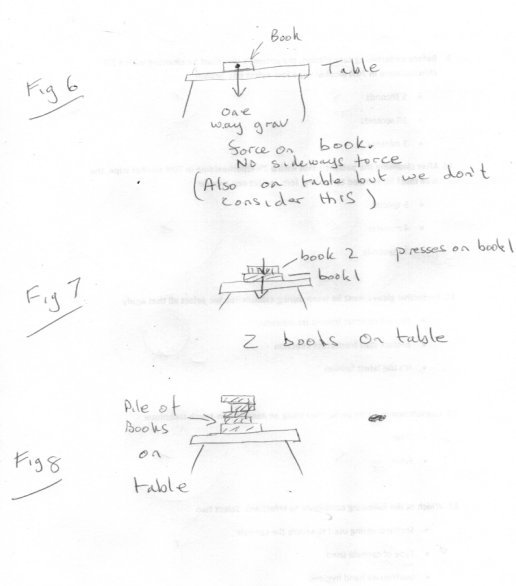 Book
Fig 6
Table
one
way grav
force on book.
NO sideways force
(Also on table but we don't
consider this)
book 2 presses on book1
book1
Fig 7
2 books on table
Pile of
Books
on
table
Fig 8